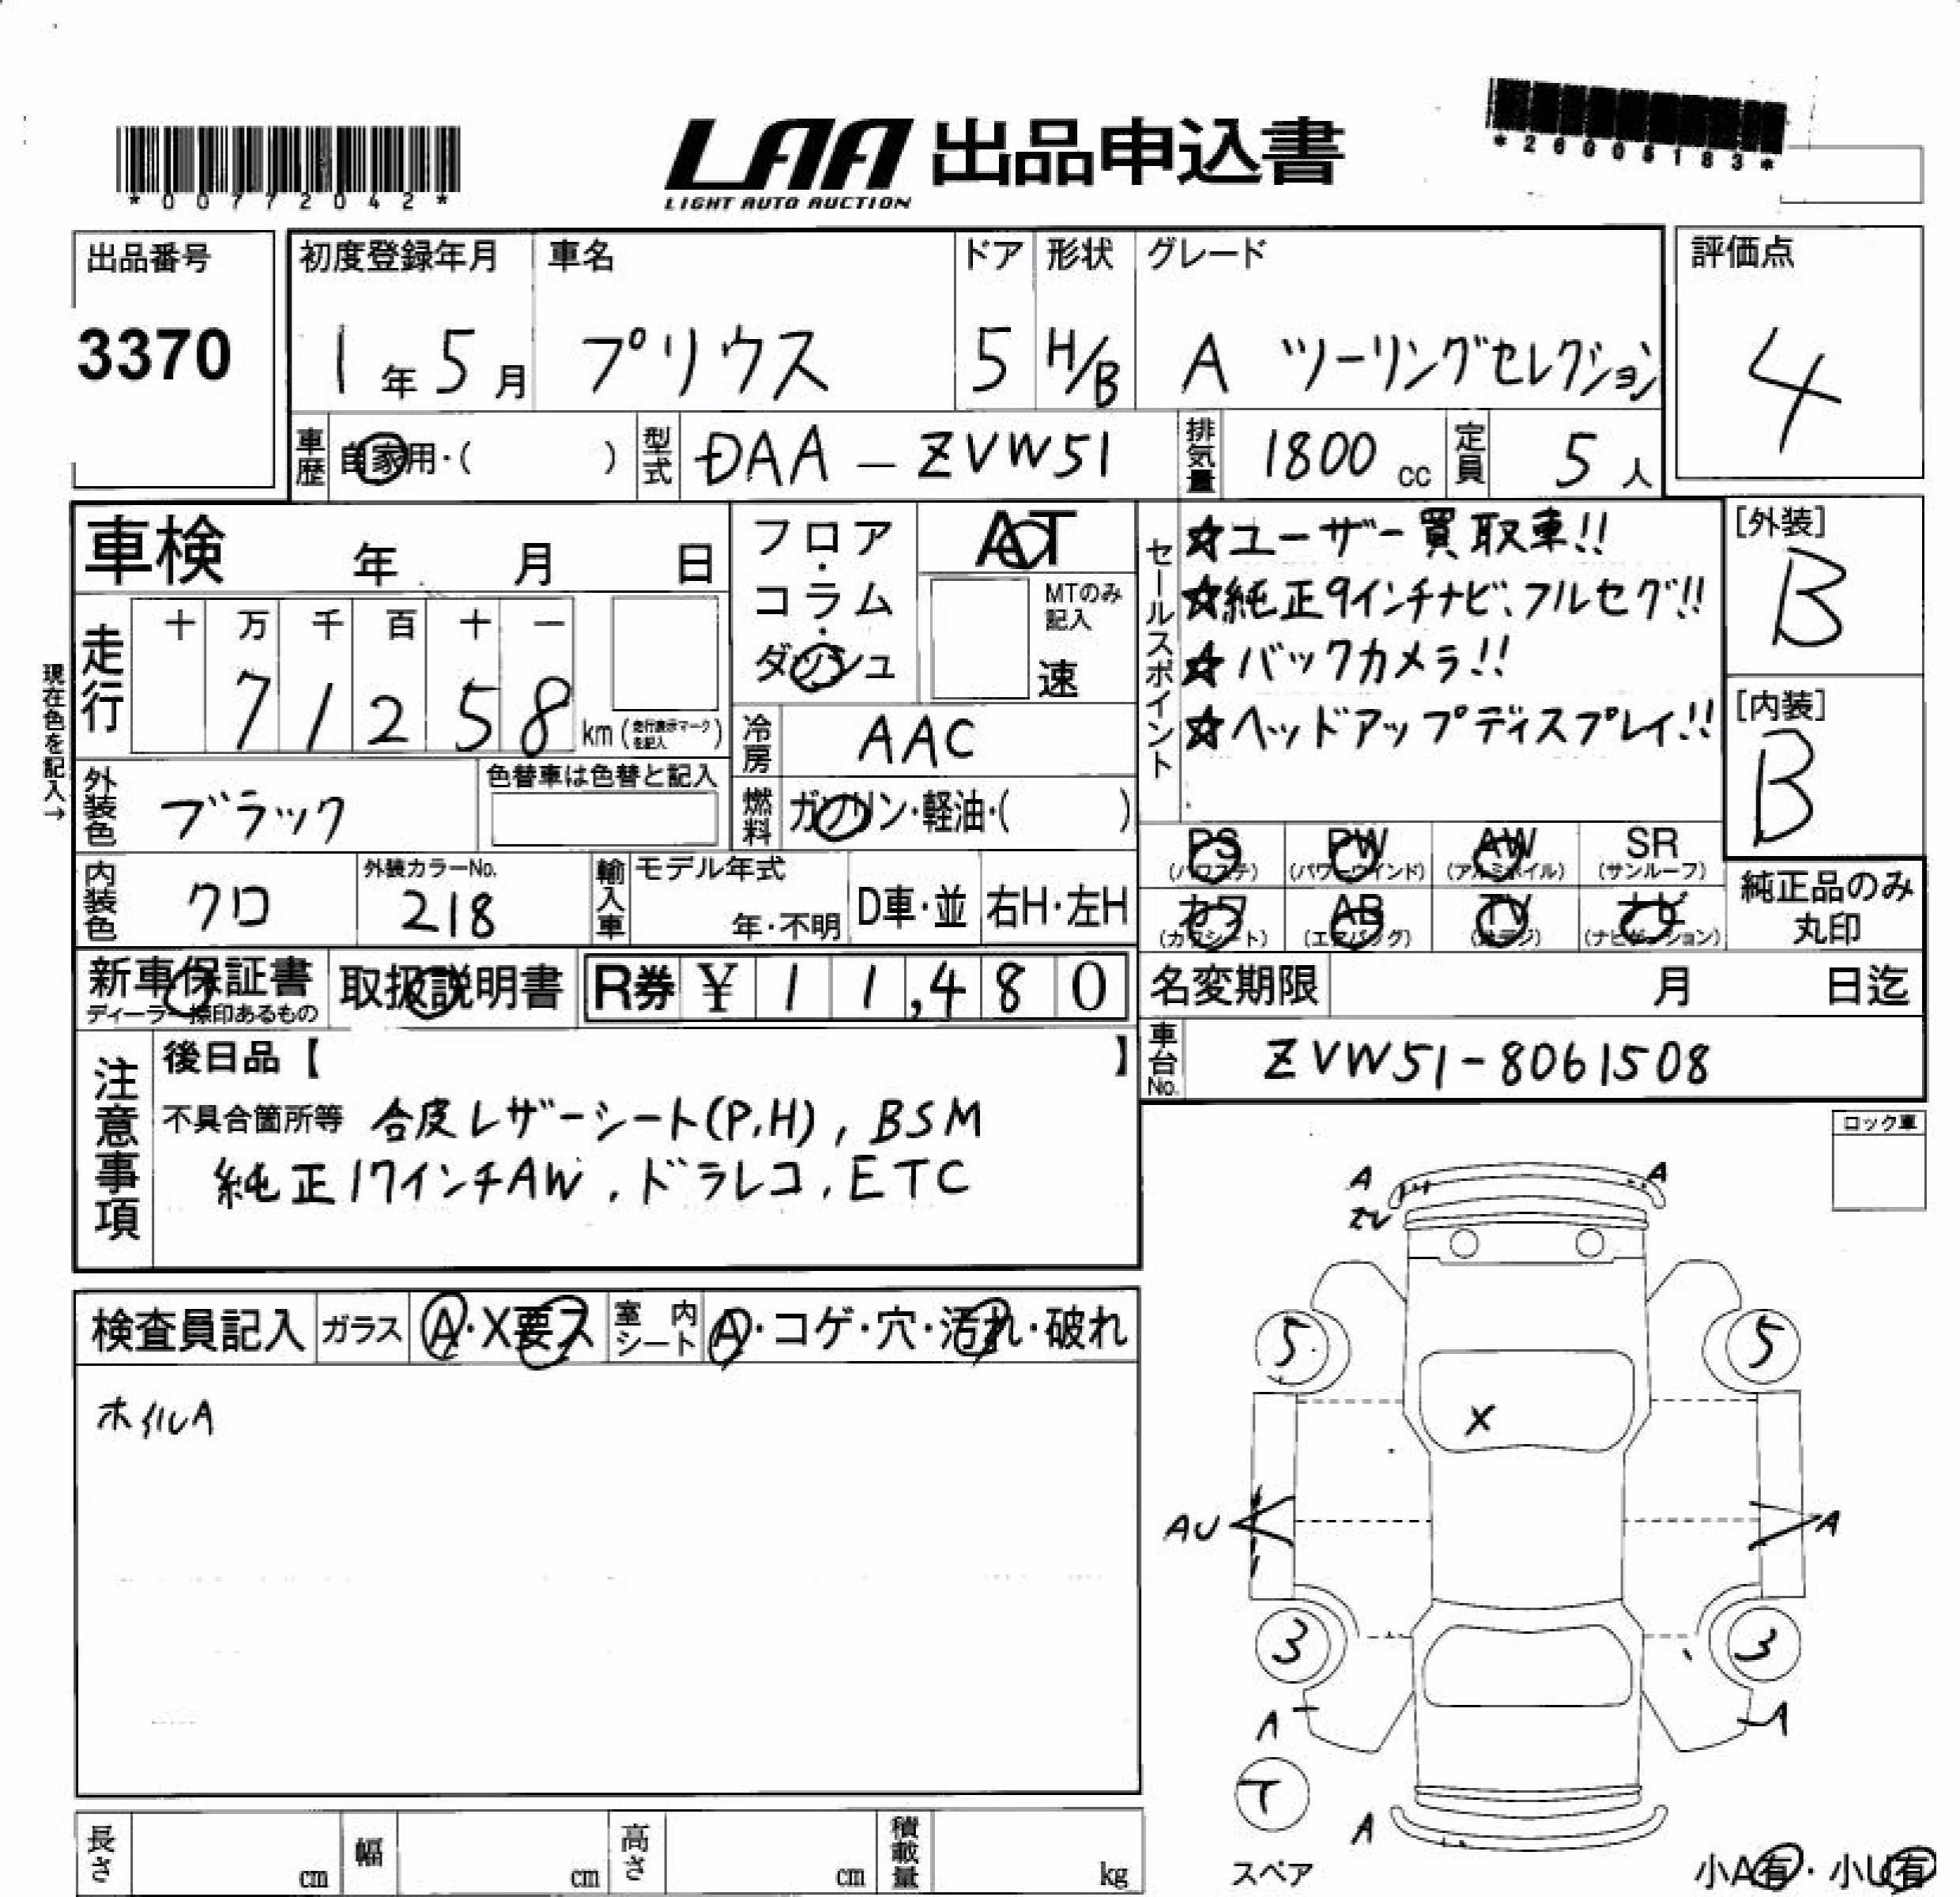 *00772042*
LAA 出品申込書
LIGHT AUTO AUCTION
*26005183*
出品番号
3370
初度登録年月
1年5月
車名
プリウス
ドア
5
形状
H/B
グレード
A ツーリングセレクション
評価点
4
車歴
自家用・( )
型式
DAA-ZVW51
排気量
1800 cc
定員
5人
車検 年 月 日
走行
十 万 千 百 十 一
7 1 2 5 8 km (走行表示マークを記入)
現在色を記入→
フロア・コラム・ダッシュ
AT
MTのみ記入
速
冷房
AAC
燃料
ガソリン・軽油・( )
セールスポイント
☆ユーザー買取車!!
☆純正9インチナビ、フルセグ!!
☆バックカメラ!!
☆ヘッドアップディスプレイ!!
[外装]
B
[内装]
B
外装色
ブラック
色替車は色替と記入
内装色
クロ
外装カラーNo.
218
輸入車
モデル年式
年・不明
D車・並
右H・左H
PS PW AW SR
(パワステ) (パワーウインド) (アルミホイル) (サンルーフ)
カワ AB TV ナビ
(カワシート) (エアバッグ) (地デジ) (ナビゲーション)
純正品のみ
丸印
新車保証書
ディーラー捺印あるもの
取扱説明書
R券 ¥ 1 1,4 8 0
名変期限 月 日迄
車台No.
ZVW51-8061508
注意事項
後日品【 】
不具合箇所等 合皮レザーシート(P,H), BSM
純正17インチAW, ドラレコ, ETC
検査員記入
ガラス
A・X要ス
室内シート
A・コゲ・穴・汚れ・破れ
ホイルA
ロック車
A A
5 5
X
AU A
3 3
A A
T
スペア
A
小A有・小U有
長さ cm
幅 cm
高さ cm
積載量 kg